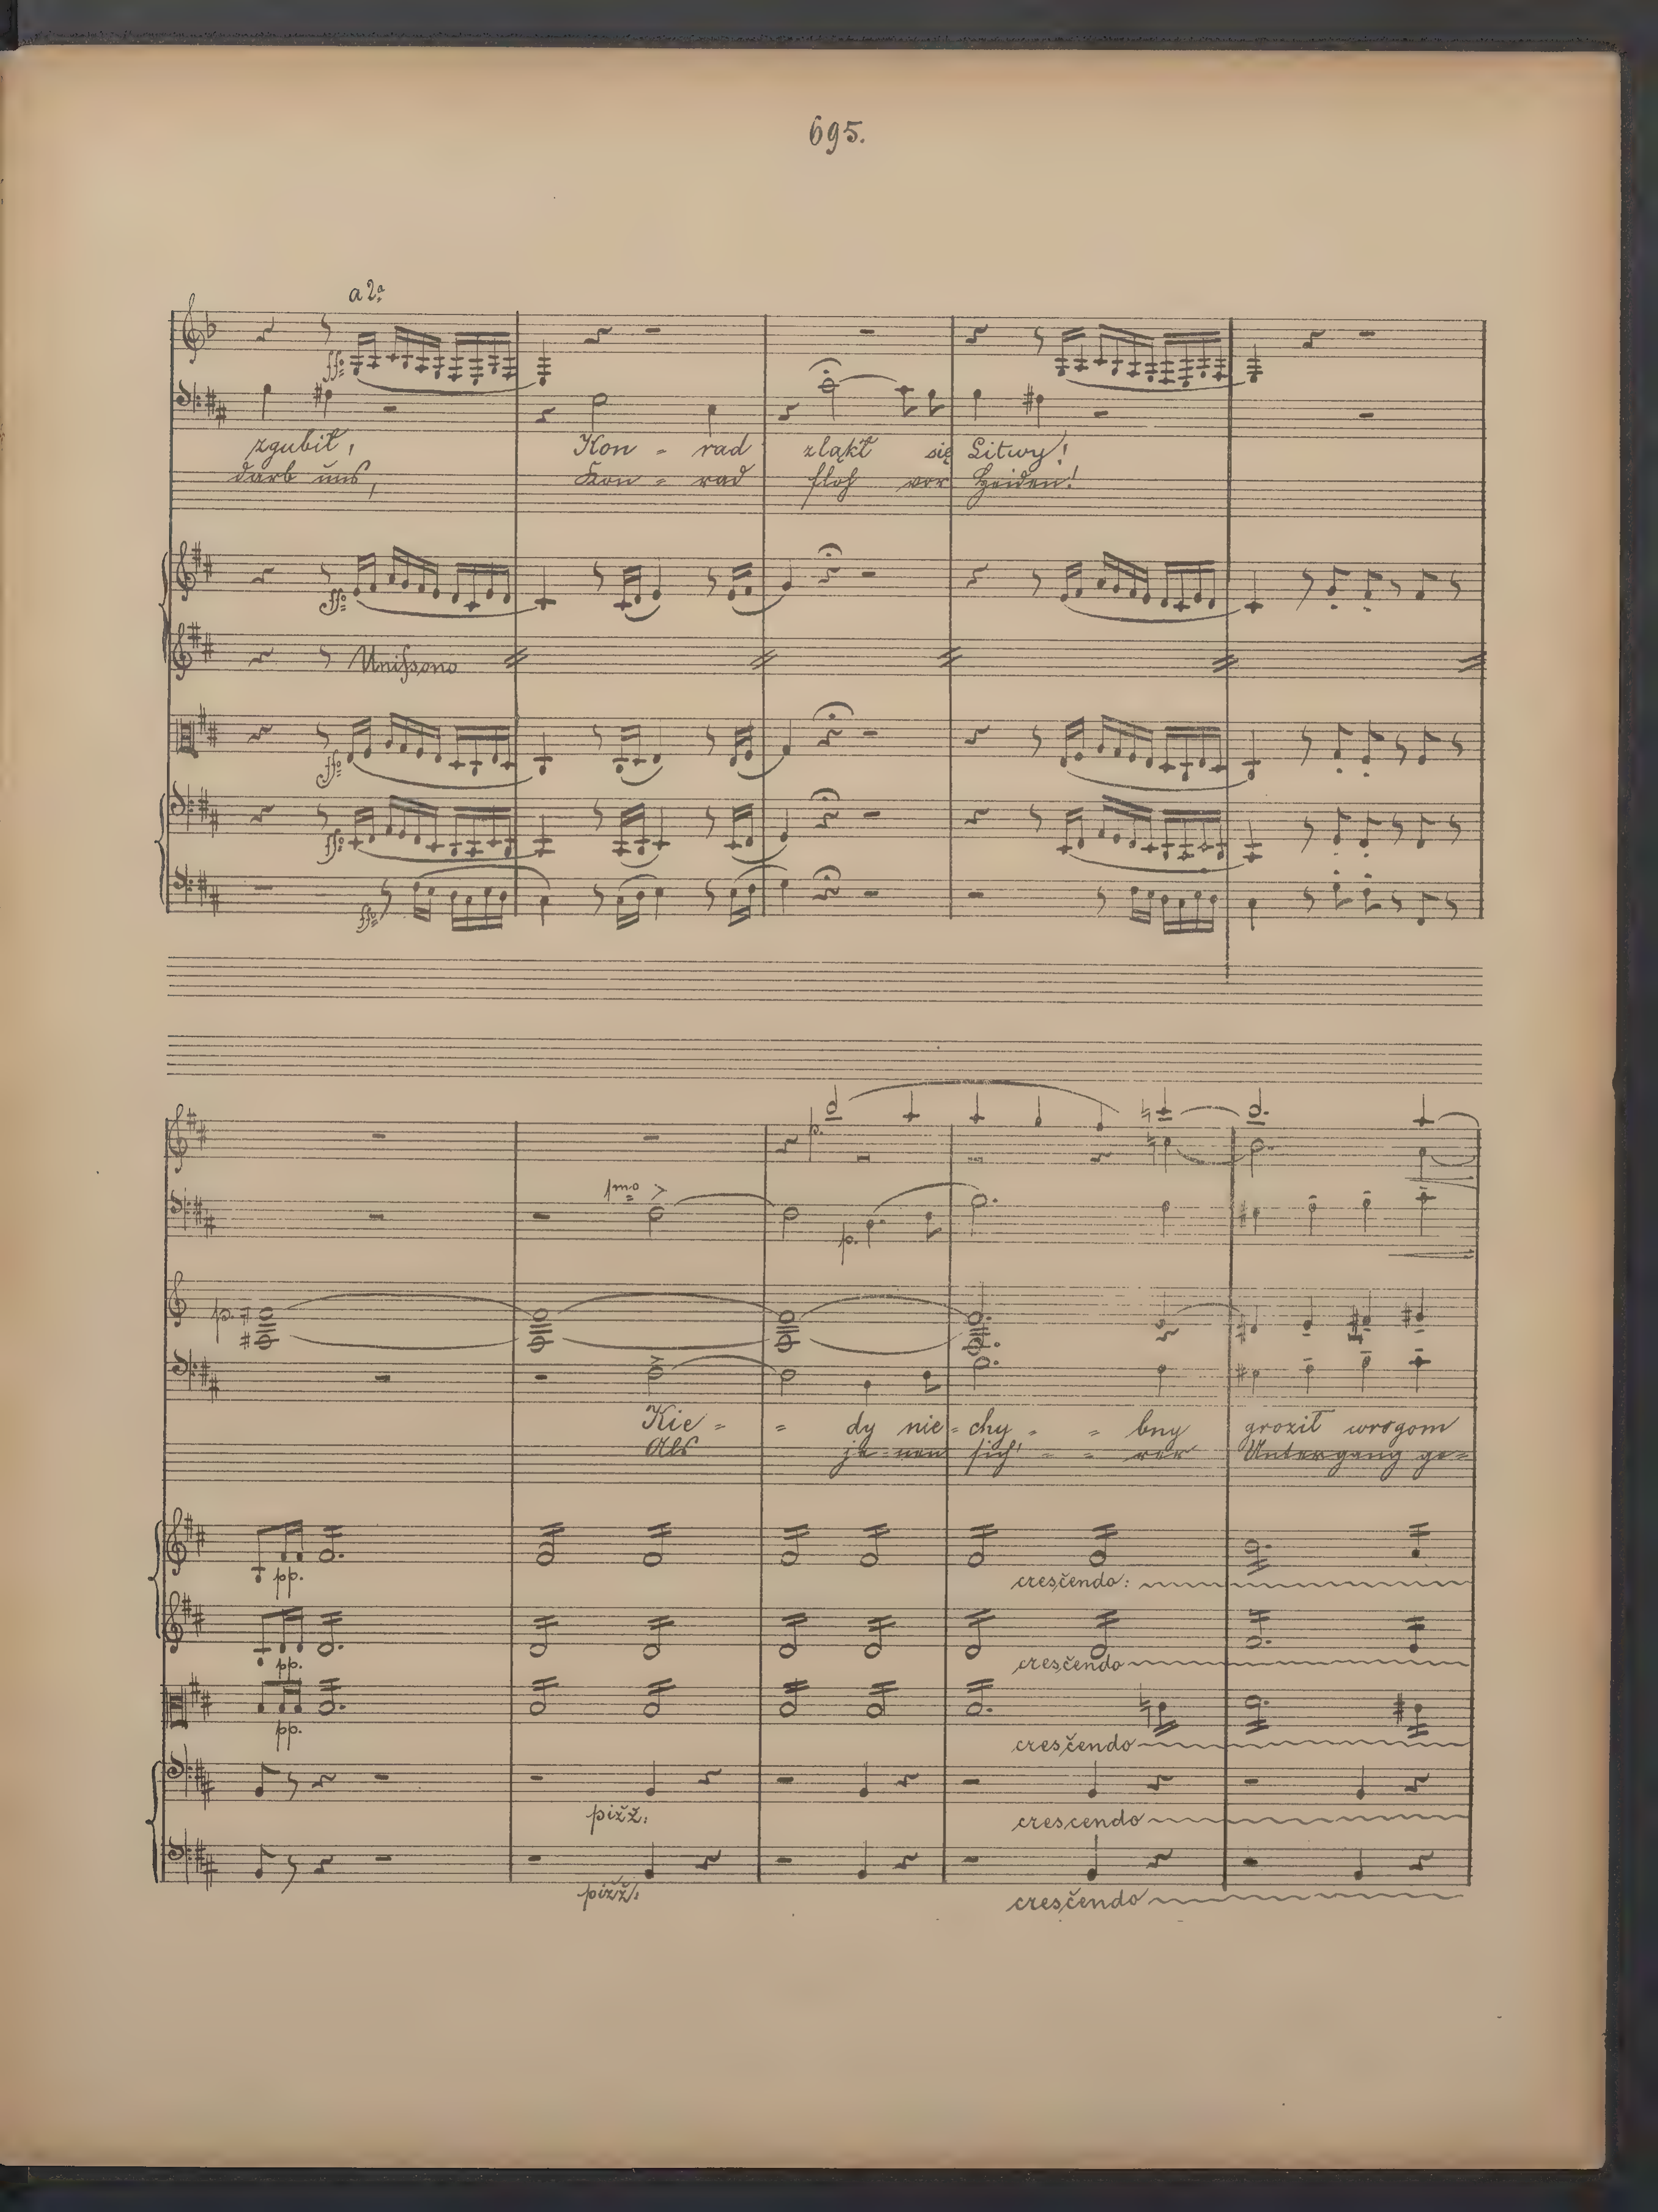 695.
a 2º
ff:
zgubił, Kon - rad zląkł się Litwy!
darb uns, Kon - rad floh vor Heiden!
ff:
Unissono
ff:
ff:
ff:
p.
1mo >
p.
p.
Kie - - dy nie - chy - - bny groził wrogom
Als je - nen sich' - - rer Untergang ge-
pp. crescendo:
pp. crescendo
pp. crescendo
pizz: crescendo
pizz: crescendo